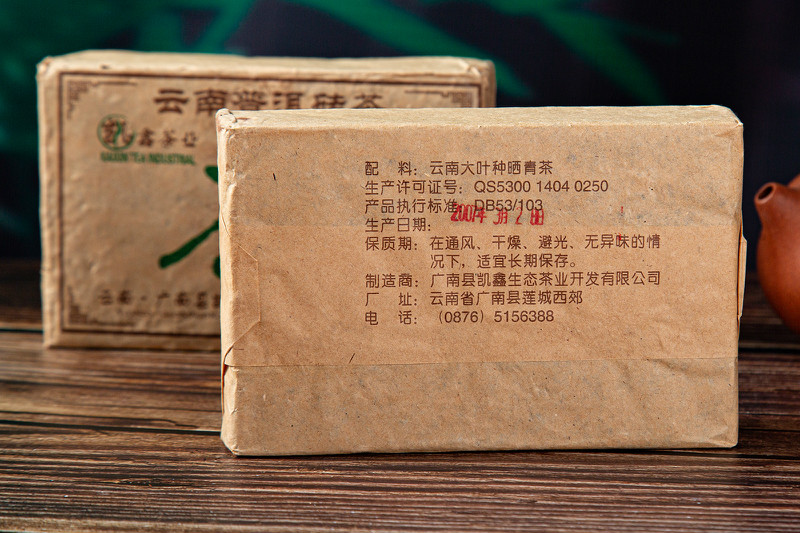 云南普洱砖茶
鑫茶份
KAIXIN TEA INDUSTRIAL
云南·广南县
配　料：云南大叶种晒青茶
生产许可证号：QS5300 1404 0250
产品执行标准：DB53/103
生产日期：
2007年 3月 2 日
保质期：在通风、干燥、避光、无异味的情
况下，适宜长期保存。
制造商：广南县凯鑫生态茶业开发有限公司
厂　址：云南省广南县莲城西郊
电　话：（0876）5156388